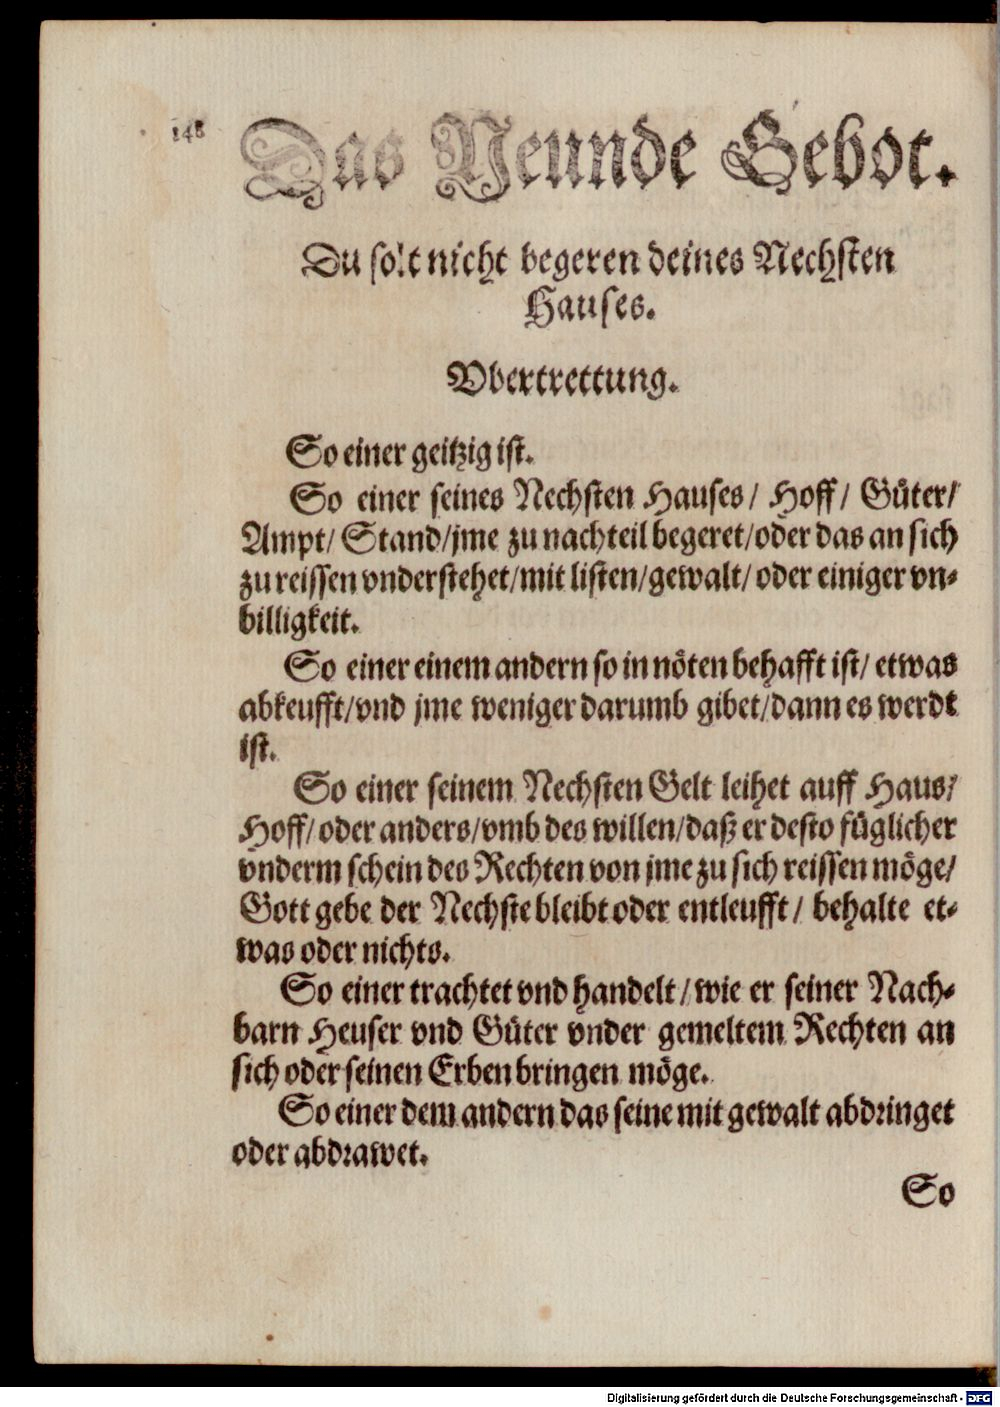 148
Das Neunde Gebot.
Du solt nicht begeren deines Nechsten
Hauses.
Vbertrettung.
So einer geitzig ist.
So einer seines Nechsten Hauses/ Hoff/ Güter/
Ampt/ Stand/jme zu nachteil begeret/oder das an sich
zu reissen vnderstehet/mit listen/gewalt/ oder einiger vn-
billigkeit.
So einer einem andern so in nöten behafft ist/ etwas
abkeufft/vnd jme weniger darumb gibet/dann es werdt
ist.
So einer seinem Nechsten Gelt leihet auff Haus/
Hoff/oder anders/vmb des willen/daß er desto füglicher
vnderm schein des Rechten von jme zu sich reissen möge/
Gott gebe der Nechste bleibt oder entleufft/ behalte et-
was oder nichts.
So einer trachtet vnd handelt/wie er seiner Nach-
barn Heuser vnd Güter vnder gemeltem Rechten an
sich oder seinen Erben bringen möge.
So einer dem andern das seine mit gewalt abdringet
oder abdrawet.
So
Digitalisierung gefördert durch die Deutsche Forschungsgemeinschaft - DFG